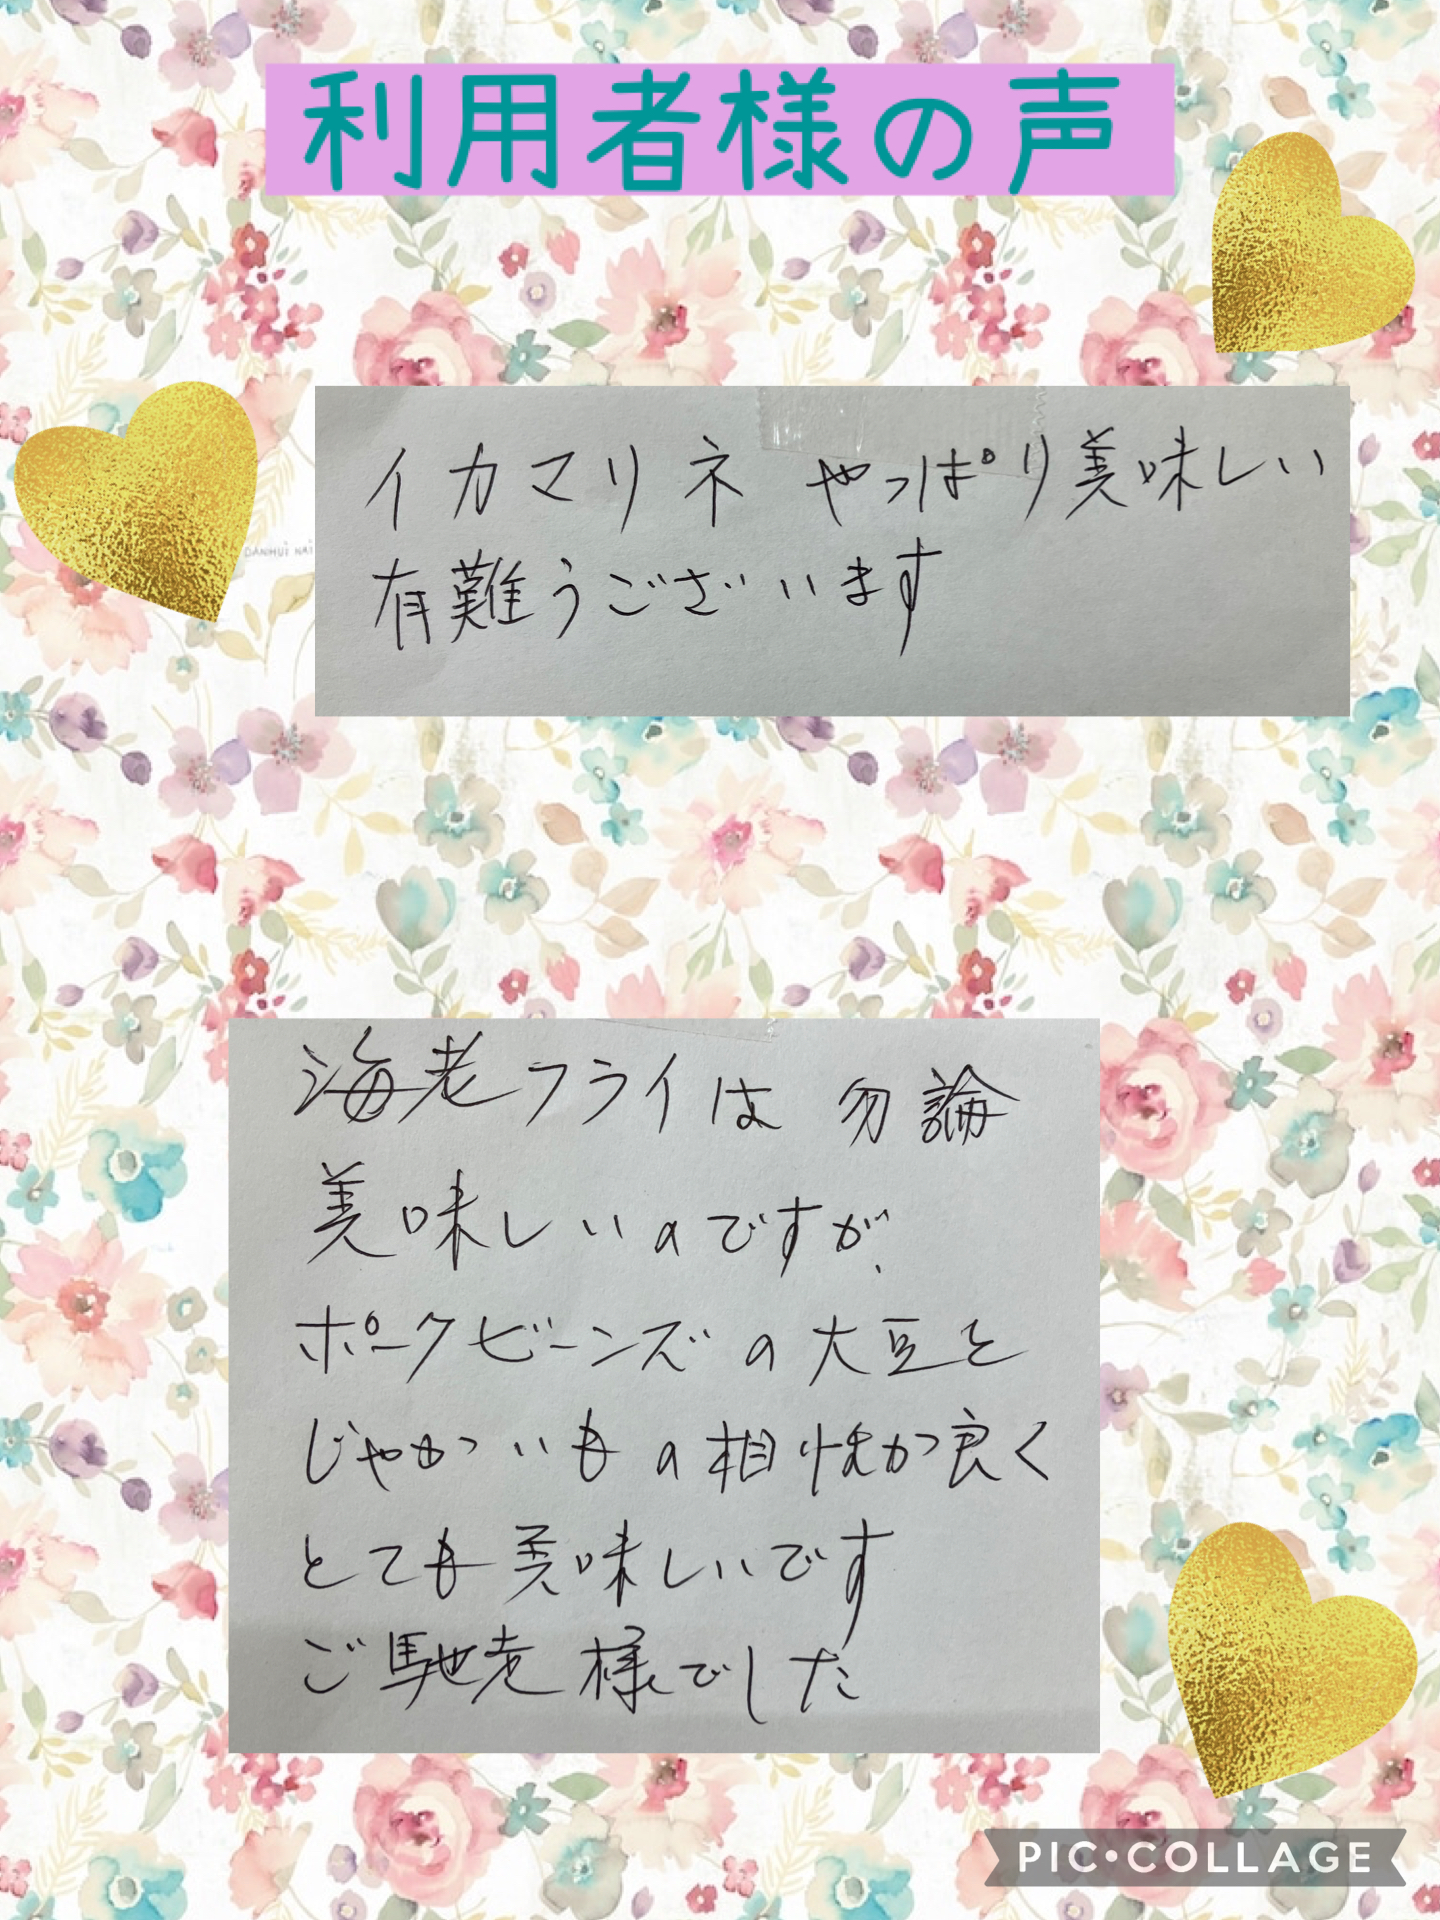 利用者様の声
イカマリネ やっぱり美味しい
有難うございます
DANHUI NAI
海老フライは 勿論
美味しいのですが、
ポークビーンズの大豆と
じゃがいもの相性が良く
とても美味しいです
ご馳走様でした
PIC•COLLAGE